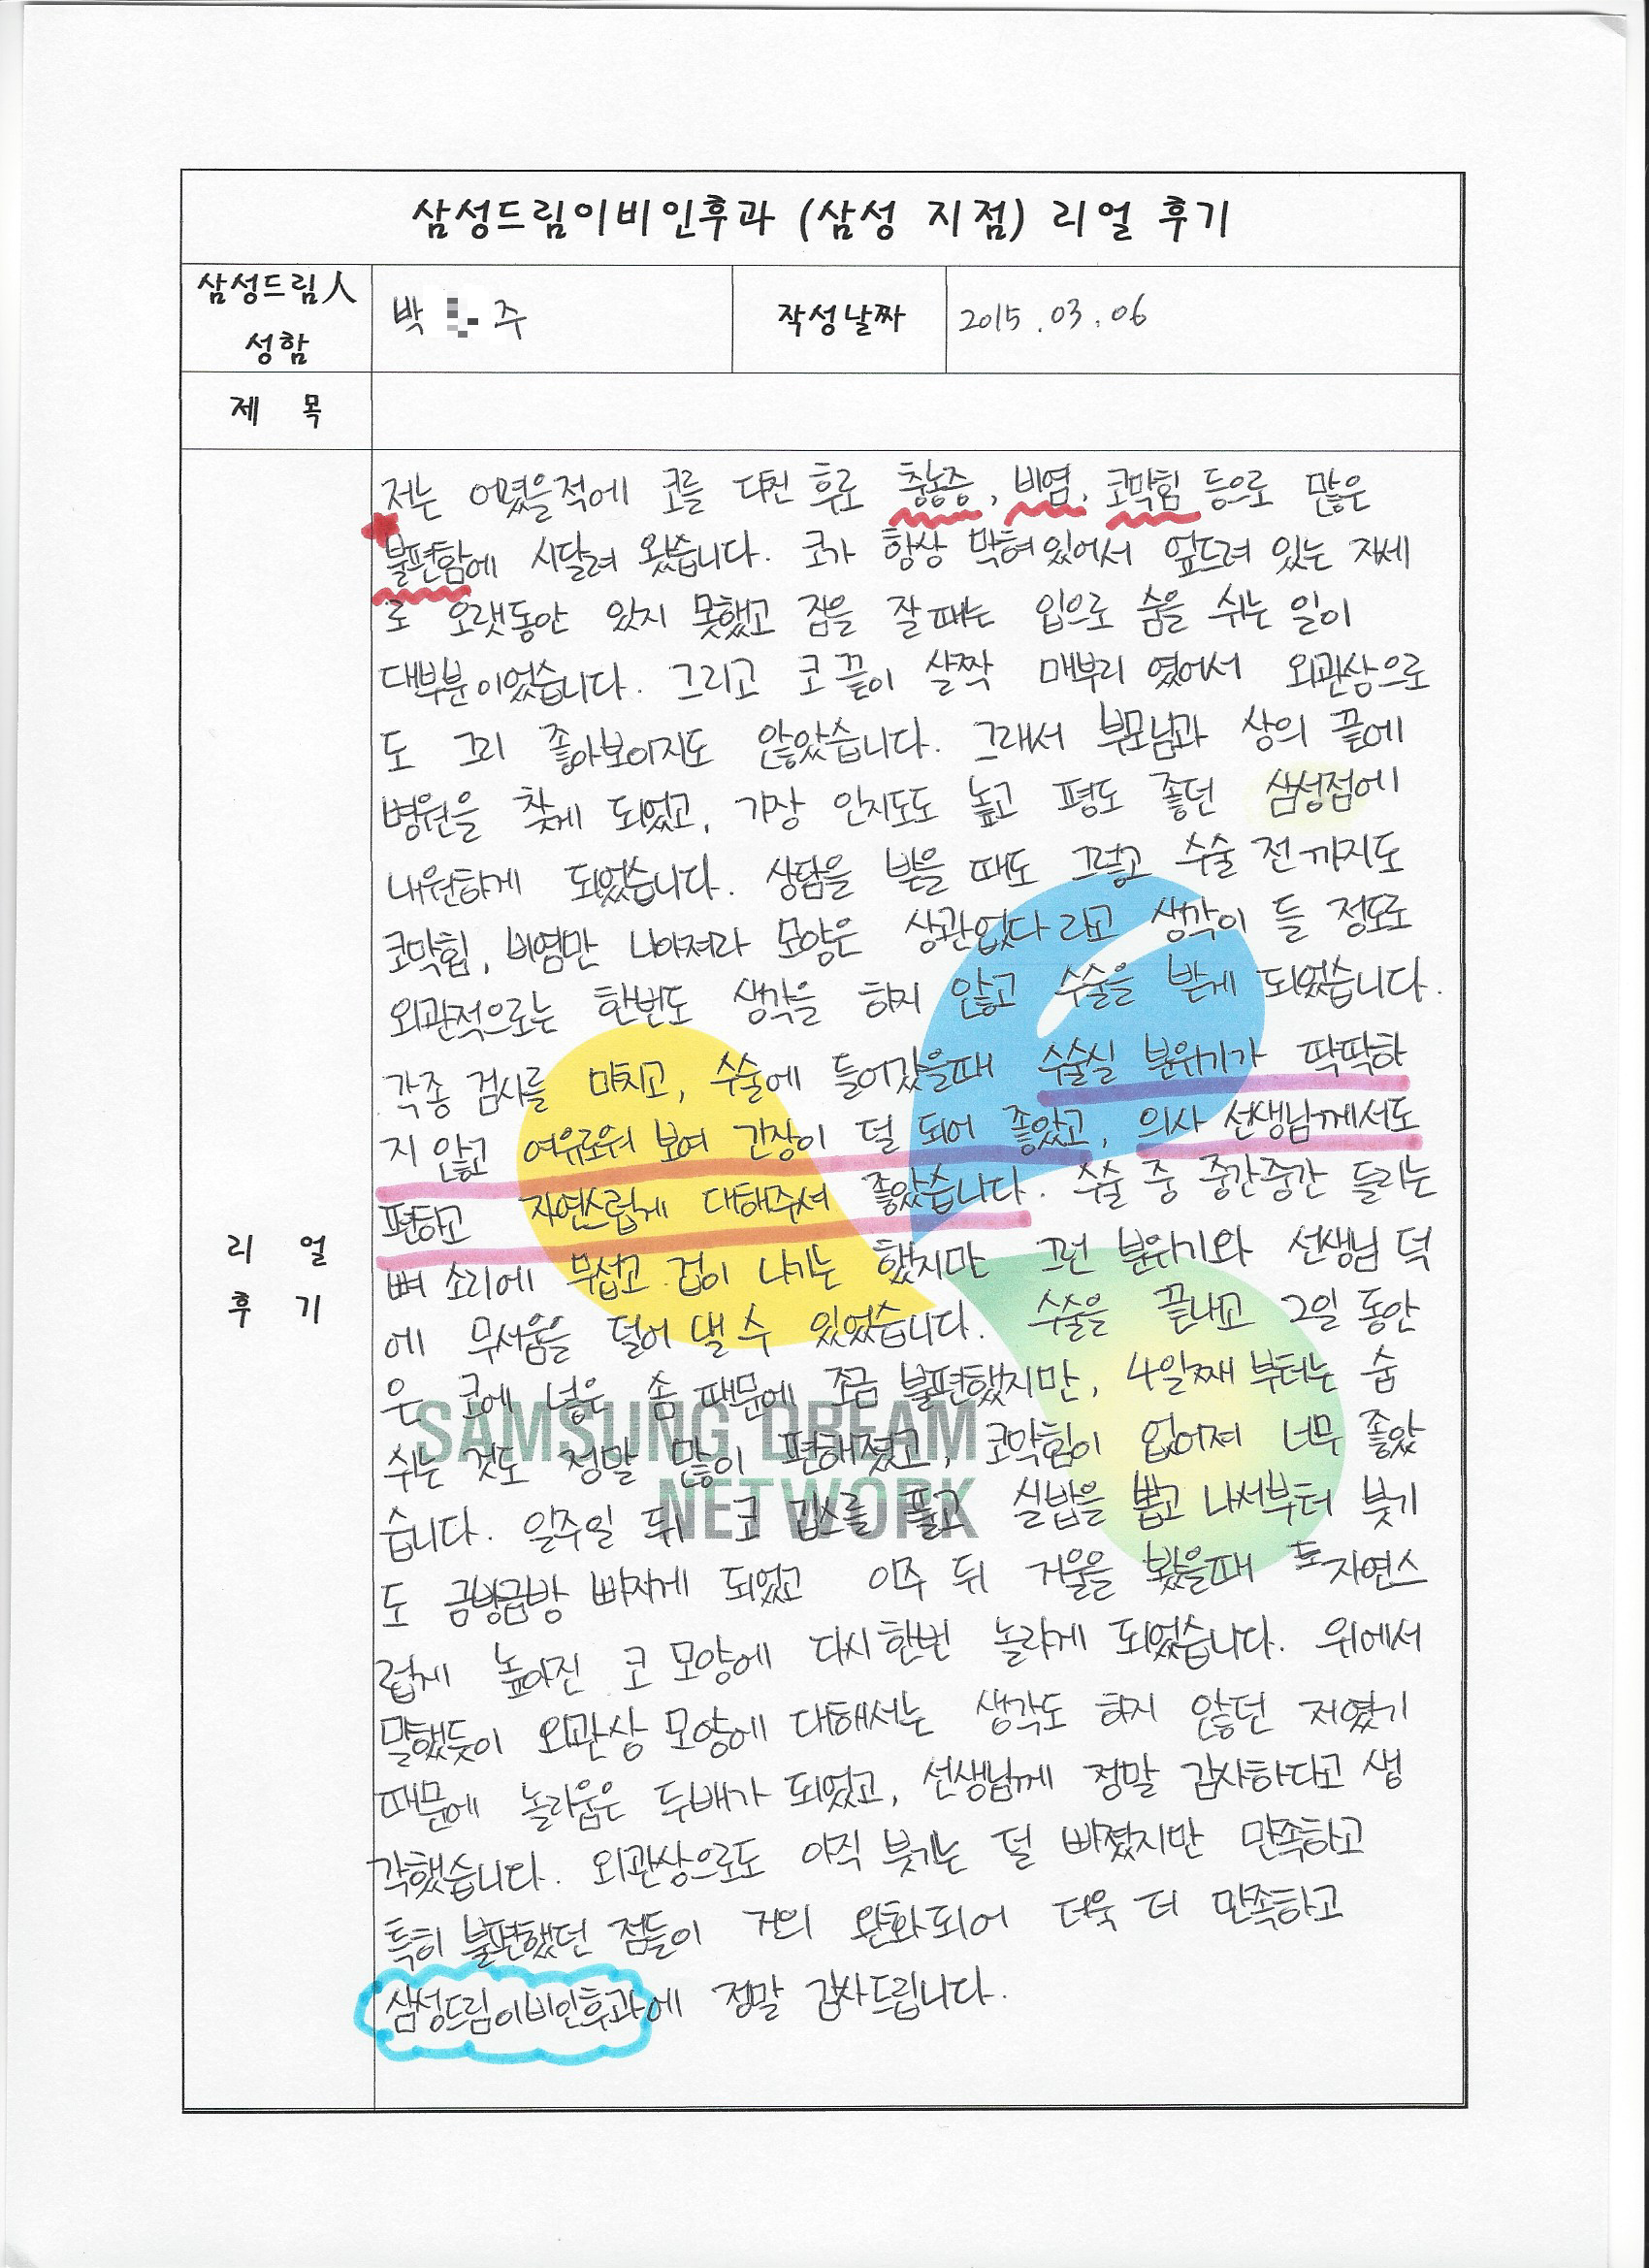 삼성드림이비인후과 (삼성 지점) 리얼 후기
삼성드림人
성함
박 주
작성날짜
2015.03.06
제 목
리 얼
후 기
저는 어렸을적에 코를 다친 후로 축농증, 비염, 코막힘 등으로 많은
불편함에 시달려 왔습니다. 코가 항상 막혀있어서 엎드려 있는 자세
로 오랫동안 있지 못했고 잠을 잘 때는 입으로 숨을 쉬는 일이
대부분이었습니다. 그리고 코 끝이 살짝 매부리 였어서 외관상으로
도 그리 좋아보이지도 않았습니다. 그래서 부모님과 상의 끝에
병원을 찾게 되었고, 가장 인지도도 높고 평도 좋던 삼성점에
내원하게 되었습니다. 상담을 받을 때도 그렇고 수술 전까지도
코막힘, 비염만 나아져라 모양은 상관없다 라고 생각이 들 정도로
외관적으로는 한번도 생각을 하지 않고 수술을 받게 되었습니다.
각종 검사를 마치고, 수술에 들어갔을때 수술실 분위기가 딱딱하
지 않고 여유로워 보여 긴장이 덜 되어 좋았고, 의사 선생님께서도
편하고 자연스럽게 대해주셔 좋았습니다. 수술 중 중간중간 들리는
뼈 소리에 무섭고 겁이 나기는 했지만 그런 분위기와 선생님 덕
에 무서움을 덜어 낼 수 있었습니다. 수술을 끝내고 2일 동안
은 코에 넣은 솜 때문에 조금 불편했지만, 4일째 부터는 숨
쉬는 것도 정말 많이 편해졌고, 코막힘이 없어져 너무 좋았
습니다. 일주일 뒤 코 깁스를 풀고 실밥을 뽑고 나서부터 붓기
도 금방금방 빠지게 되었고 이주 뒤 거울을 봤을때 자연스
럽게 높아진 코 모양에 다시한번 놀라게 되었습니다. 위에서
말했듯이 외관상 모양에 대해서는 생각도 하지 않던 저였기
때문에 놀라움은 두배가 되었고, 선생님께 정말 감사하다고 생
각했습니다. 외관상으로도 아직 붓기는 덜 빠졌지만 만족하고
특히 불편했던 점들이 거의 완화되어 더욱 더 만족하고
삼성드림이비인후과에 정말 감사드립니다.
SAMSUNG DREAM
NETWORK